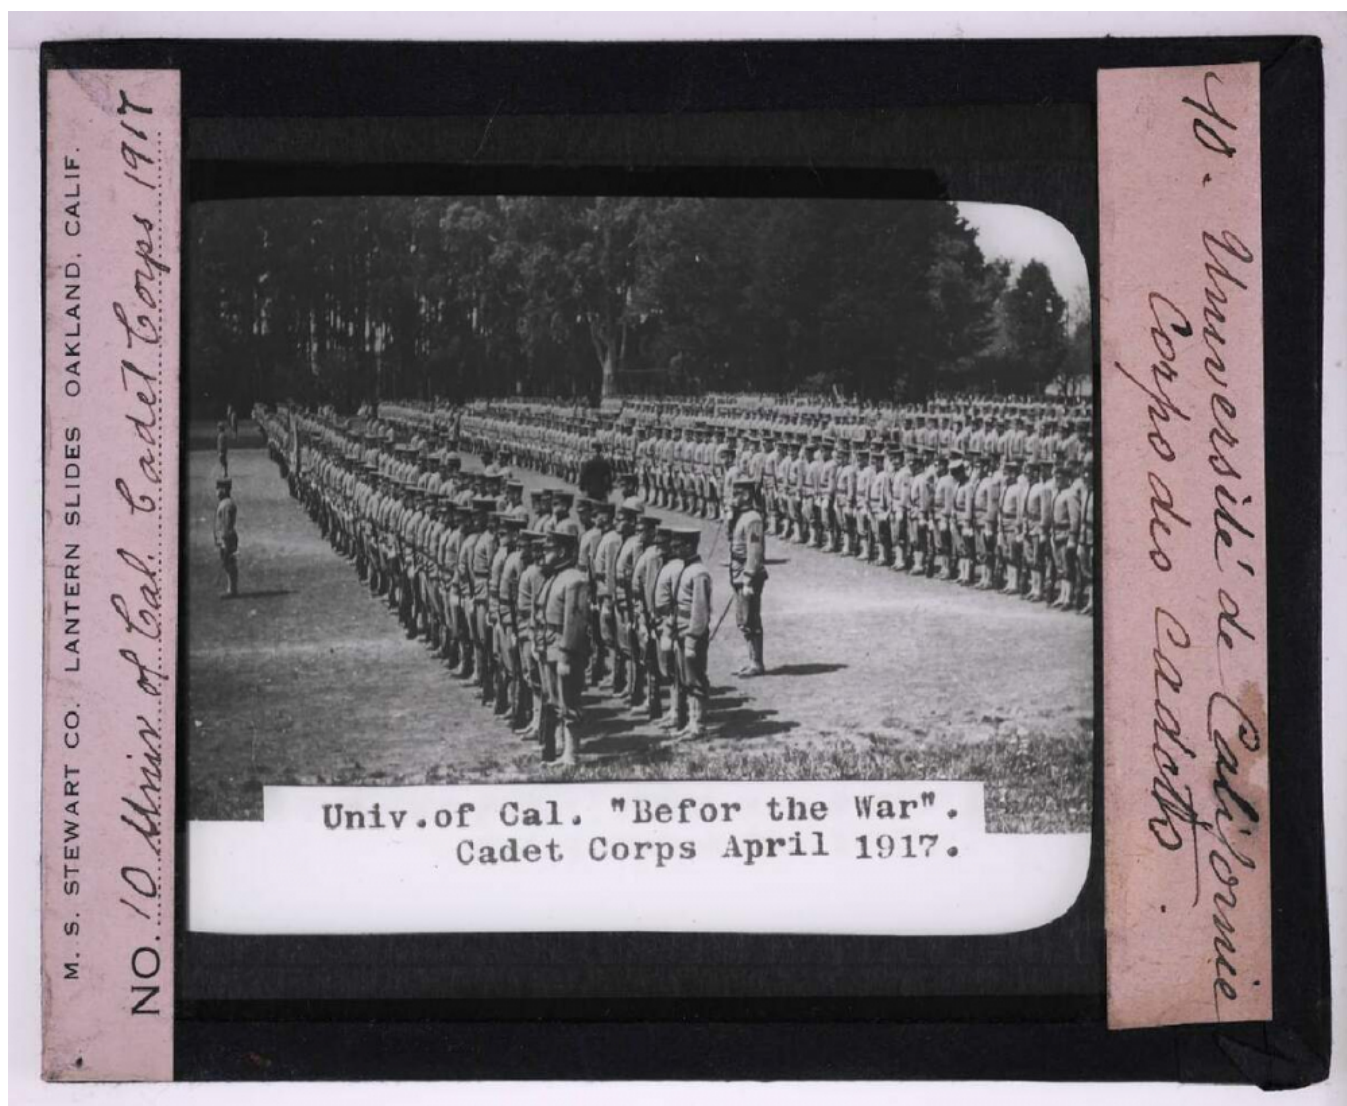 M. S. STEWART CO. LANTERN SLIDES OAKLAND, CALIF.
NO. 10 Univ. of Cal. Cadet Corps 1917
Univ.of Cal. "Befor the War".
Cadet Corps April 1917.
10 - Université de Californie
Corps des Cadets.